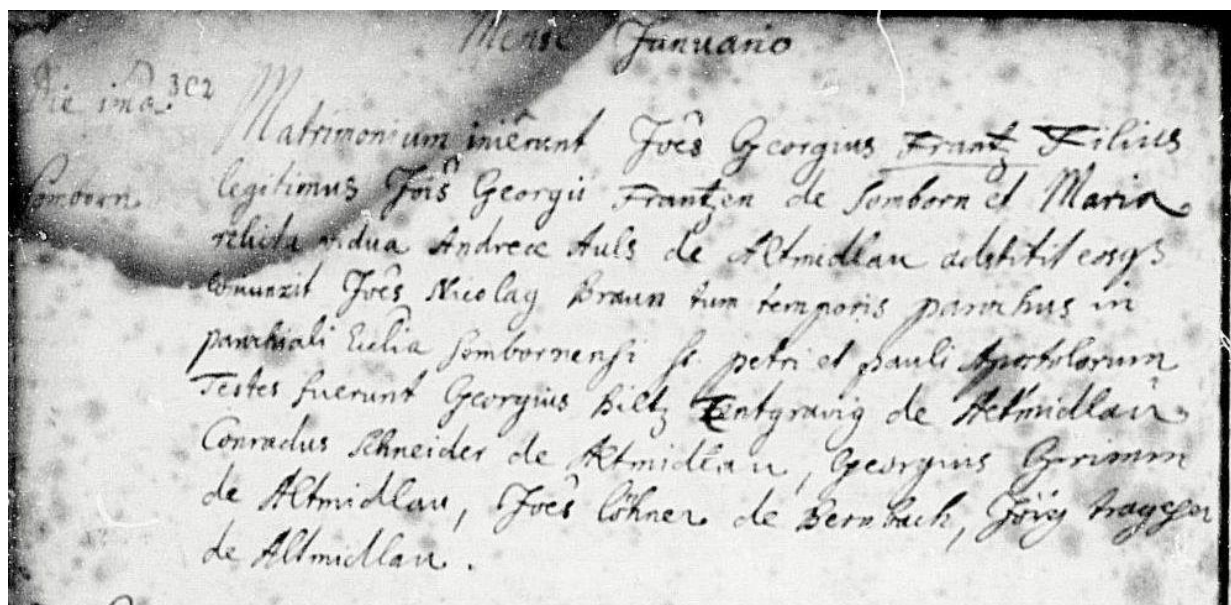 Mense Januario
Die 1ma. 302
Matrimonium iniêrunt Joês Georgius Frantz Filius
Somborn legitimus Jois Georgii Frantzen de Somborn et Maria
relicta vidua Andreæ Auls de Altmidlau adstitit eosqꝫ
Joês Nicolaꝰ Braun tum temporis parochus in
parochiali Ecclia Sombornensi SS. petri et pauli Apostolorum
Testes fuerunt Georgius Biltz Zentgraviꝰ de Altmidlau
Conradus Schneider de Altmidlau, Georgius Grimm
de Altmidlau, Joês Löhner de Bernbach, Jörg trageser
de Altmidlau.